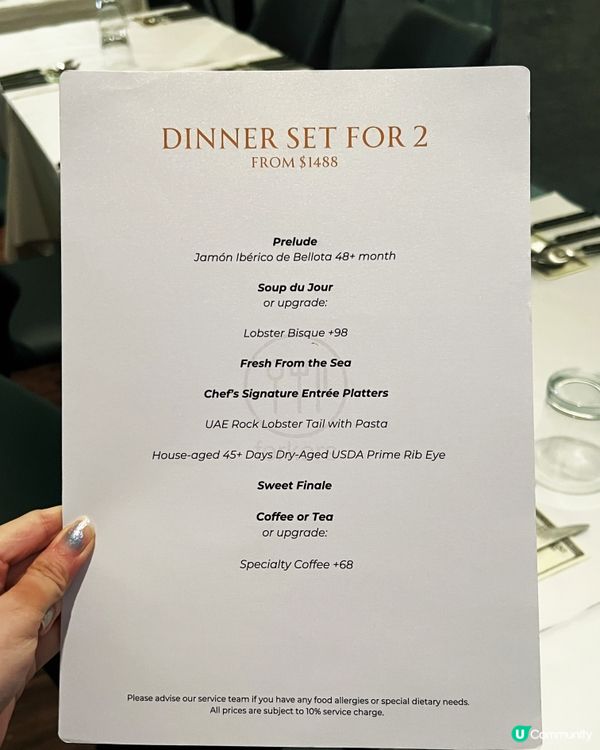 DINNER SET FOR 2
FROM $1488
Prelude
Jamón Ibérico de Bellota 48+ month
Soup du Jour
or upgrade:
Lobster Bisque +98
Fresh From the Sea
Chef's Signature Entrée Platters
UAE Rock Lobster Tail with Pasta
House-aged 45+ Days Dry-Aged USDA Prime Rib Eye
Sweet Finale
Coffee or Tea
or upgrade:
Specialty Coffee +68
Please advise our service team if you have any food allergies or special dietary needs.
All prices are subject to 10% service charge.
U Community